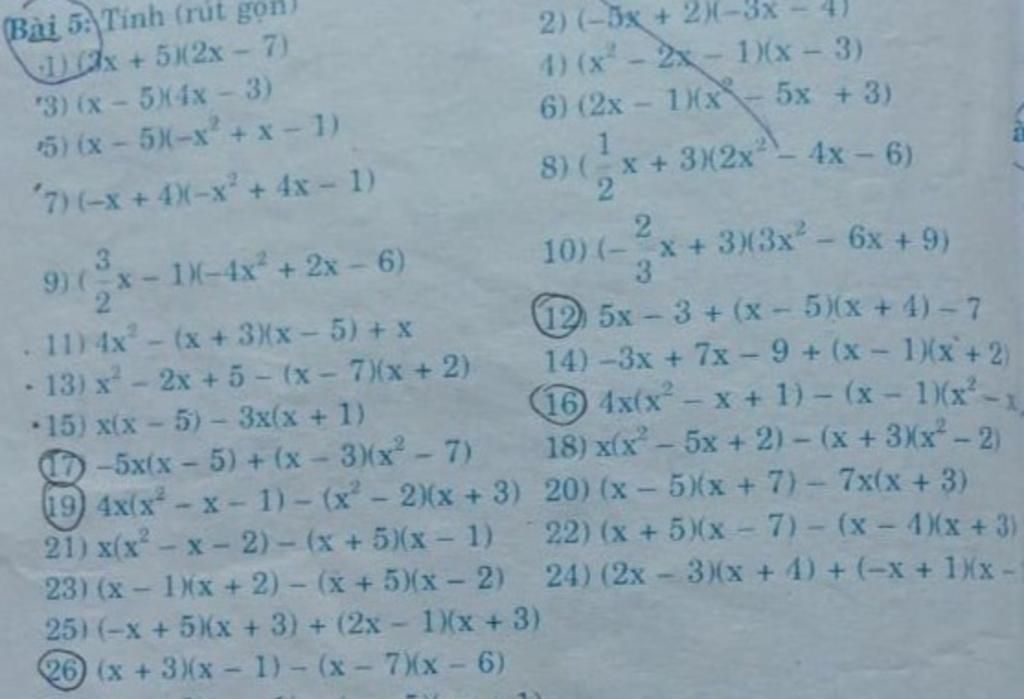 Bài 5: Tính (rút gọn)
1) (2x + 5)(2x − 7)
2) (−5x + 2)(−3x − 4)
3) (x − 5)(4x − 3)
4) (x² − 2x − 1)(x − 3)
5) (x − 5)(−x² + x − 1)
6) (2x − 1)(x² − 5x + 3)
7) (−x + 4)(−x² + 4x − 1)
8) (1/2 x + 3)(2x² − 4x − 6)
9) (3/2 x − 1)(−4x² + 2x − 6)
10) (−2/3 x + 3)(3x² − 6x + 9)
11) 4x² − (x + 3)(x − 5) + x
12) 5x − 3 + (x − 5)(x + 4) − 7
13) x² − 2x + 5 − (x − 7)(x + 2)
14) −3x + 7x − 9 + (x − 1)(x + 2)
15) x(x − 5) − 3x(x + 1)
16) 4x(x² − x + 1) − (x − 1)(x² − x
17) −5x(x − 5) + (x − 3)(x² − 7)
18) x(x² − 5x + 2) − (x + 3)(x² − 2)
19) 4x(x² − x − 1) − (x² − 2)(x + 3)
20) (x − 5)(x + 7) − 7x(x + 3)
21) x(x² − x − 2) − (x + 5)(x − 1)
22) (x + 5)(x − 7) − (x − 4)(x + 3)
23) (x − 1)(x + 2) − (x + 5)(x − 2)
24) (2x − 3)(x + 4) + (−x + 1)(x −
25) (−x + 5)(x + 3) + (2x − 1)(x + 3)
26) (x + 3)(x − 1) − (x − 7)(x − 6)